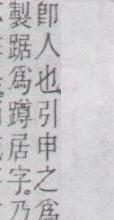 卽人也引申之爲
製踞爲蹲居字。乃